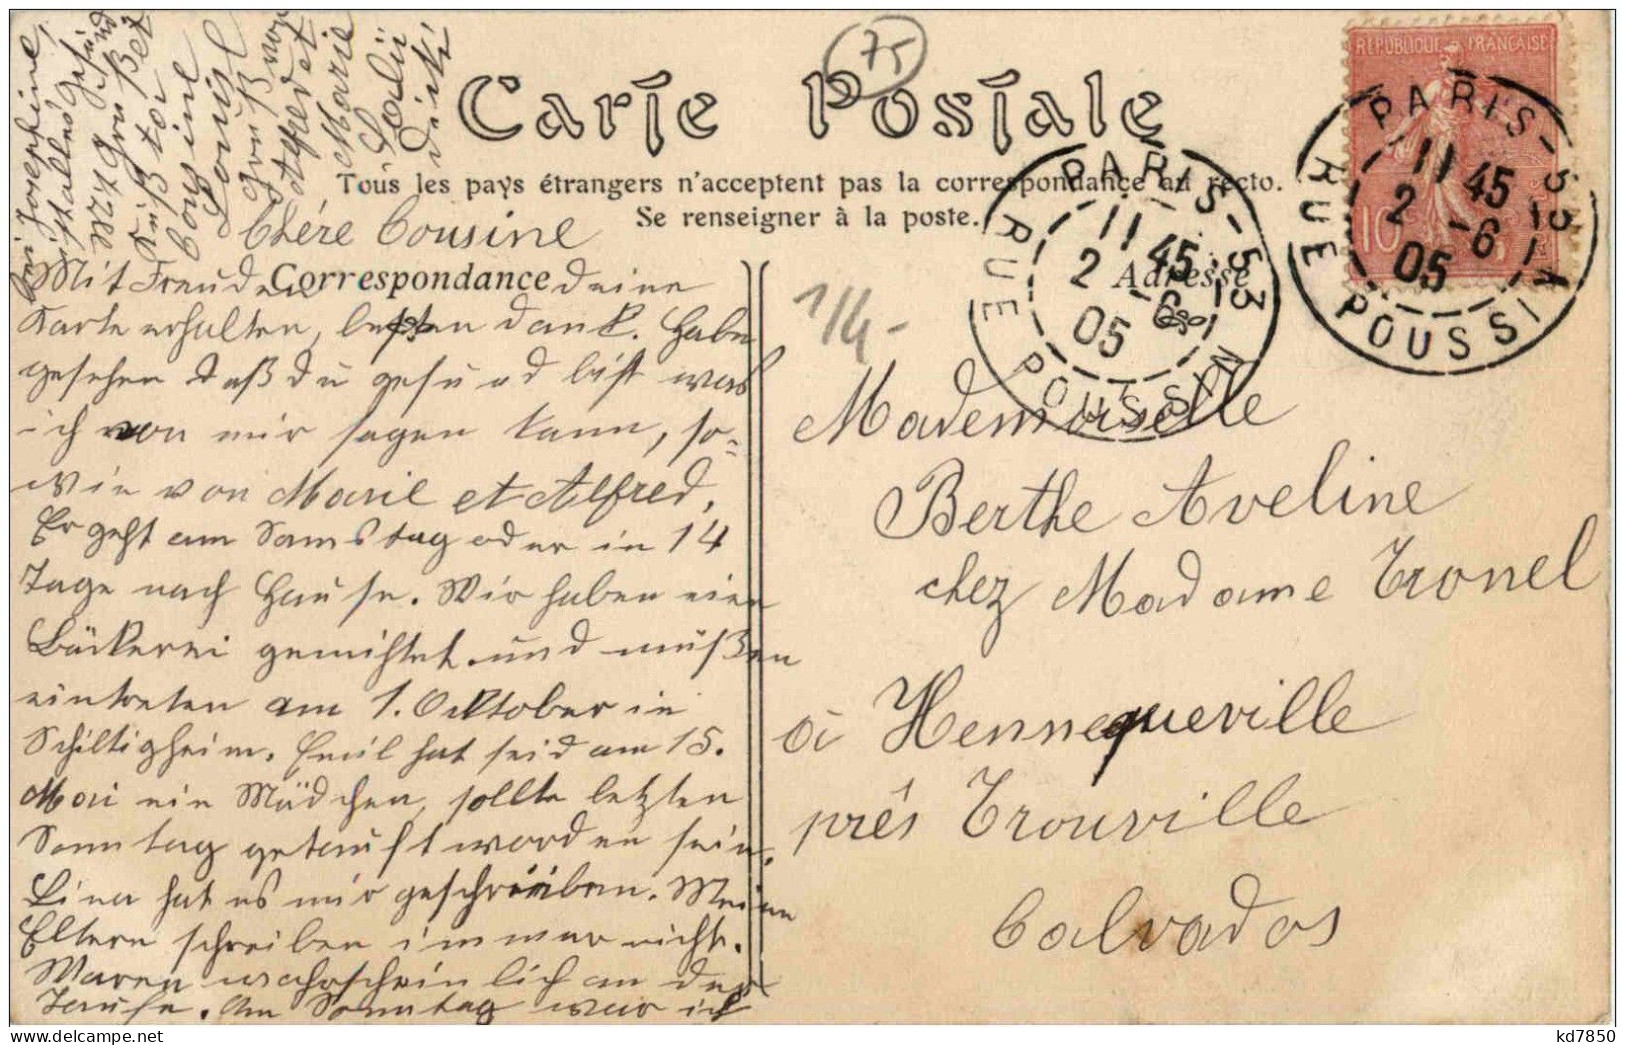 Carte Postale
75
Tous les pays étrangers n'acceptent pas la correspondance au recto.
Se renseigner à la poste.
RÉPUBLIQUE FRANÇAISE
10
PARIS-53
11 45
2 -6
05
RUE POUSSIN
PARIS-53
11 45
2 -6
05
RUE POUSSIN
Correspondance
Adresse
1/4-
Chére Cousine
Mit Freuden deine
Karte erhalten, besten Dank. Habe
gesehen daß du gesund bist was
ich von mir sagen kann, so=
wie von Marie et Alfred.
Er geht am Samstag oder in 14
Tage nach Hause. Wir haben eine
Bäckerei gemiehtet und müßen
eintreten am 1. Oktober in
Schiltigheim. Emil hat seid am 15.
Mai ein Mädchen, sollte letzten
Sonntag getauft worden sein.
Lina hat es mir geschrieben. Meine
Eltern schreiben immer nicht.
Waren wahrscheinlich an der
Taufe. Am Sonntag war ich
bei Josephine,
Gruß
Cousine
Louise
Gruß von
Alfred et
Marie
Mademoiselle
Berthe Aveline
chez Madame Tronel
à Hennequeville
près Trouville
Calvados
kd7850